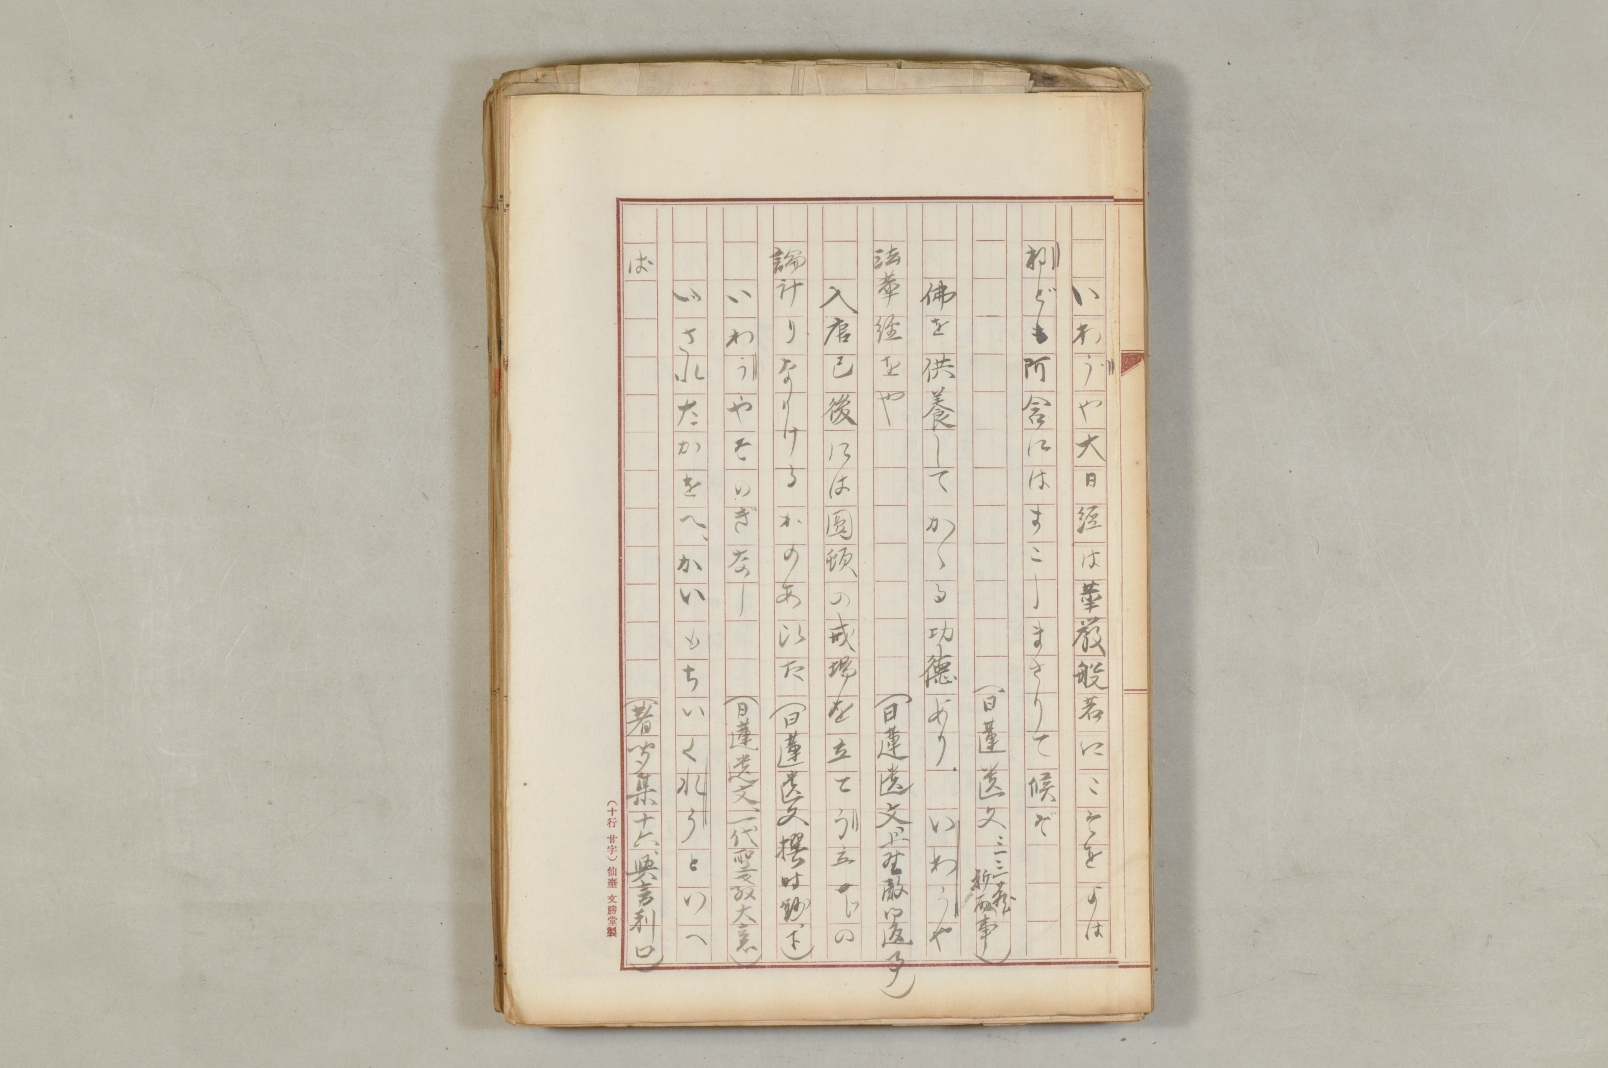 いわうや大日経は華厳般若にこそをよは
ねども阿含にはすこしまさりて候ぞ
(日蓮遺文、三三蔵祈雨事)
佛を供養してかゝる功徳あり.いわうや
法華経をや
(日蓮遺文上野殿御返事)
入唐已後には圓頓の戒場を立てう立やの
論計りなりけるかのあひた(日蓮遺文撰時鈔下)
いわうやそのぎなし(日蓮遺文、一代聖教大意)
いされたかをへ、かいもちいくれうといへ
は(著聞集十六、興言利口)
(十行 廿字) 仙臺 文勝堂製